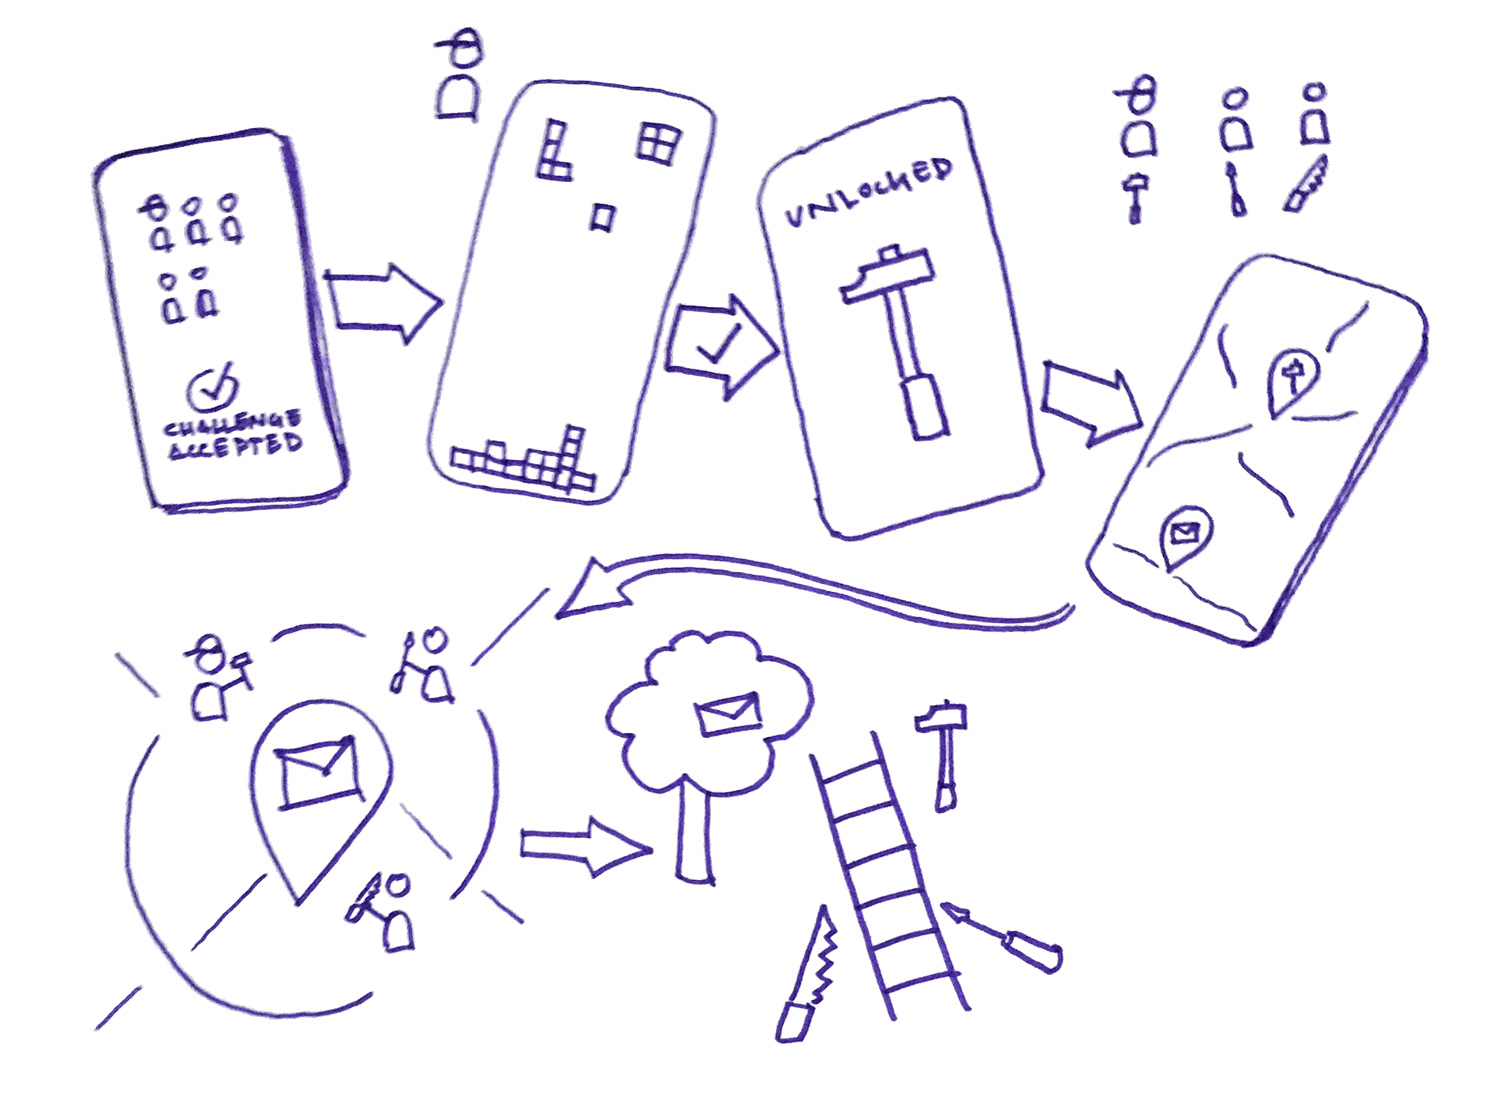 CHALLENGE
ACCEPTED
UNLOCKED